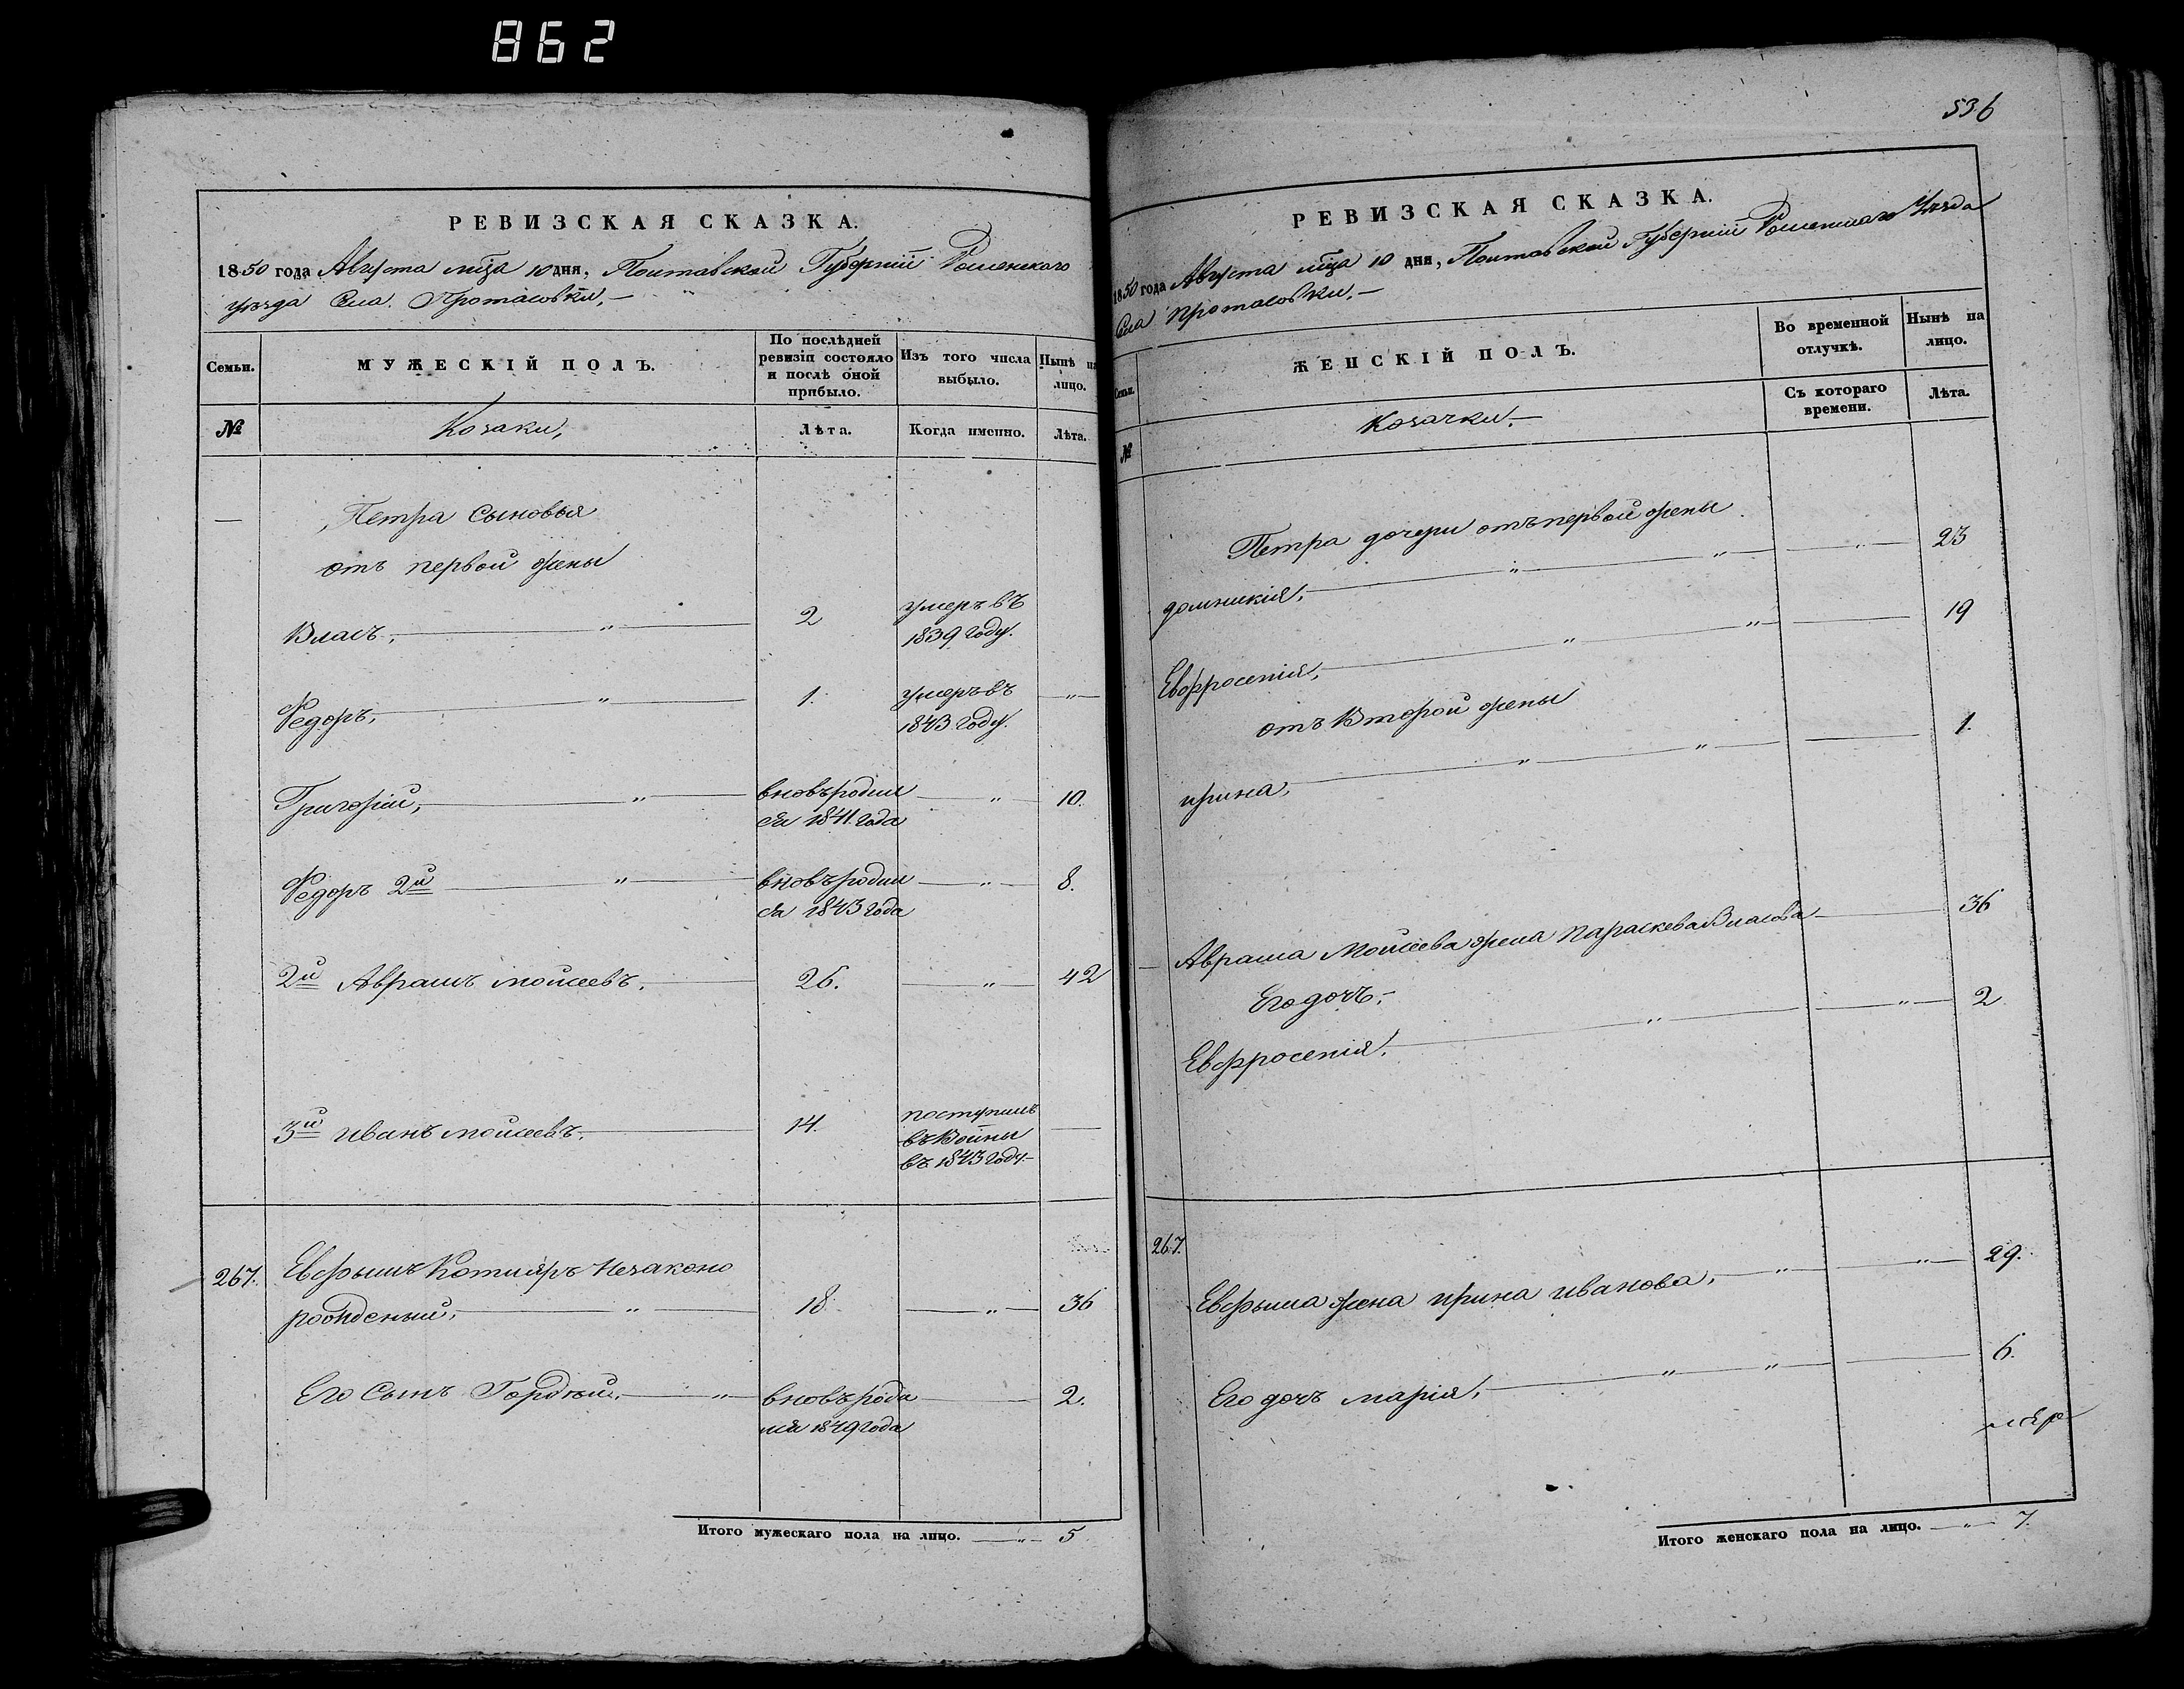 862
РЕВИЗСКАЯ СКАЗКА.
1850 года Августа мца 10 дня, Полтавской Губерніи Роменского
уѣзда Села Протасовки,
Семьи.
МУЖЕСКІЙ ПОЛЪ.
По послѣдней
ревизіи состояло
и послѣ оной
прибыло.
Изъ того числа
выбыло.
Нынѣ на
лицо.
№
Козаки,
Лѣта.
Когда именно.
Лѣта.
Петра Сыновья
отъ первой жены
Власъ, 2 умеръ въ
1839 году.
Федоръ, 1. умеръ въ
1843 году.
Григорій, вновь родил 10.
ся 1841 года
Федоръ 2й вновь родил 8.
ся 1843 года
2й Аврамъ Моисеевъ, 26. 42
3й Иванъ Моисеевъ, 14. поступилъ
въ Воины
въ 1843 году.
267. Евфымъ Котляръ Незаконо
рожденый, 18 36
Его Сынъ Гордѣй, вновь роди 2.
лся 1849 года
Итого мужескаго пола на лицо. 5
536
РЕВИЗСКАЯ СКАЗКА.
1850 года Августа мца 10 дня, Полтавской Губерніи Роменскаго Уѣзда
Села Протасовки,
Семьи.
ЖЕНСКІЙ ПОЛЪ.
Во временной
отлучкѣ.
Нынѣ на
лицо.
№
Козачки,
Съ котораго
времени.
Лѣта.
Петра дочери отъ первой жены
Домникія, 23
Евфросенія, 19
отъ Второй жены
Ирина, 1.
Аврама Моисеева жена Параскева Власова 36
Его дочь,
Евфросенія, 2
267.
Евфыма жена Ирина Иванова, 29.
Его дочь Марія, 6.
Итого женскаго пола на лицо. 7.